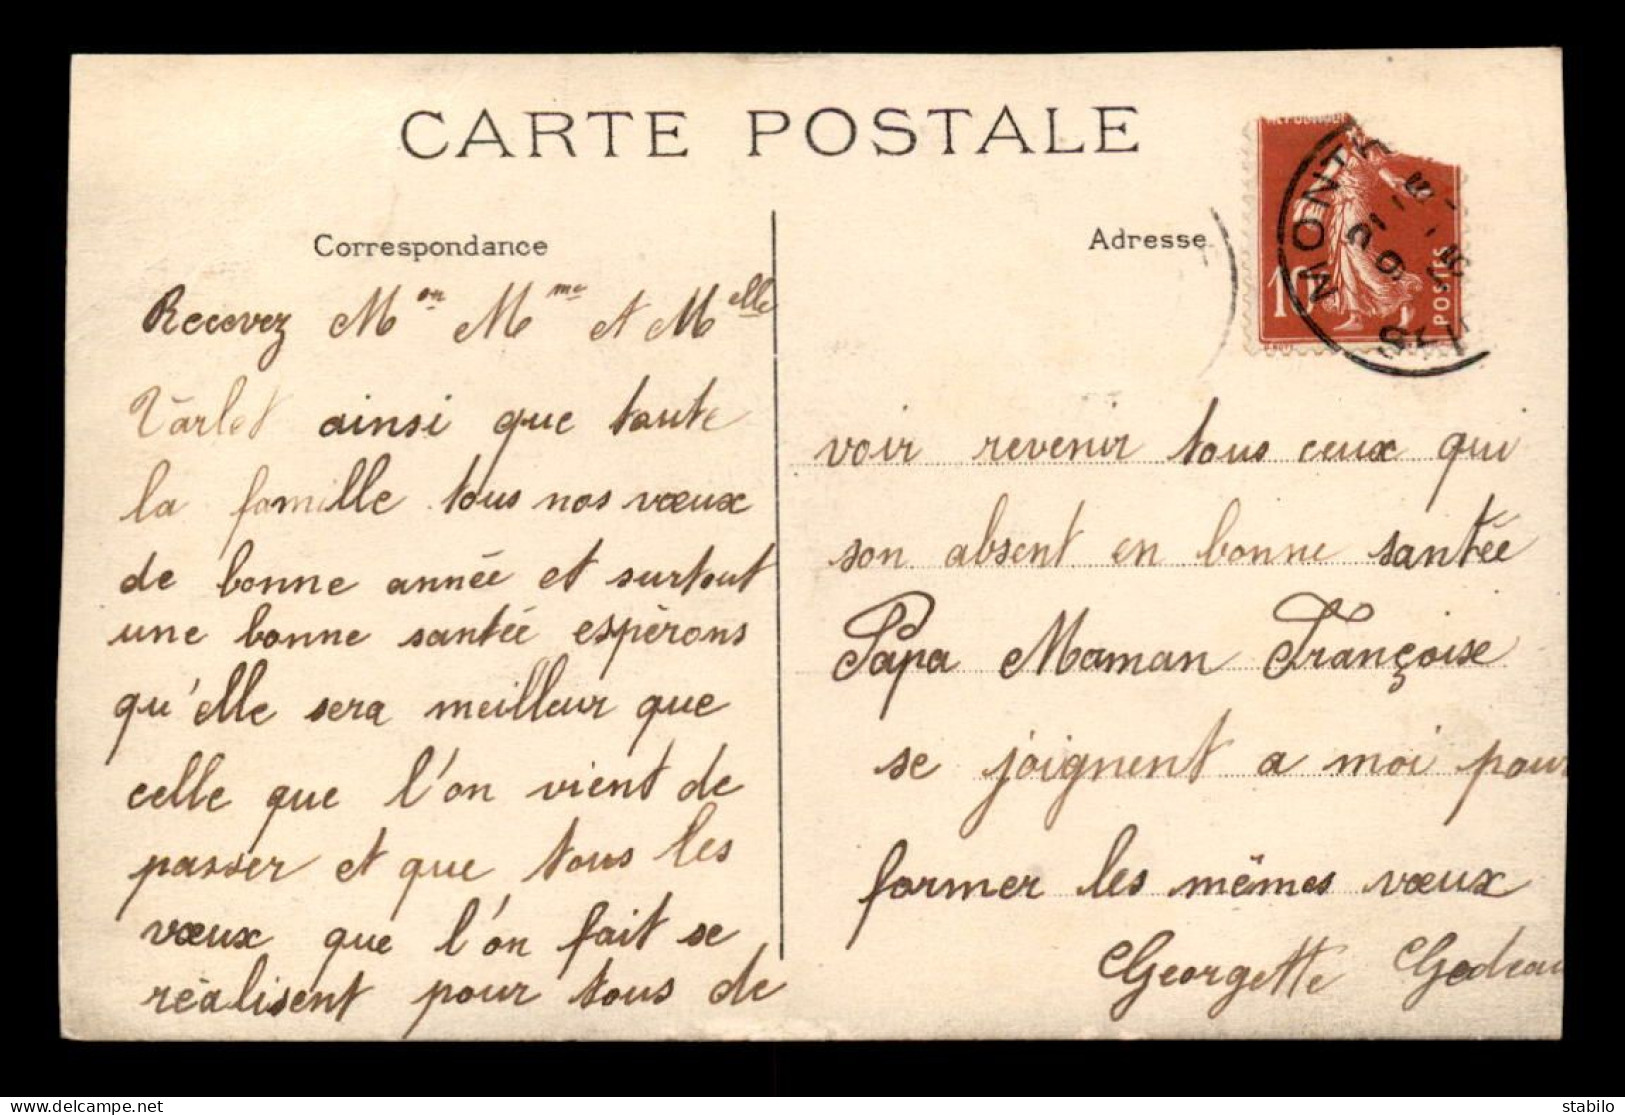 CARTE POSTALE
Correspondance
Recevez Mon Mme et Melle
Varlet ainsi que toute
la famille tous nos vœux
de bonne année et surtout
une bonne santée espèrons
qu'elle sera meilleur que
celle que l'on vient de
passer et que tous les
vœux que l'on fait se
réalisent pour tous de
Adresse
POSTES
10
MONT
voir revenir tous ceux qui
son absent en bonne santée
Papa Maman Françoise
se joignent a moi pour
former les mêmes vœux
Georgette Godeau
stabilo